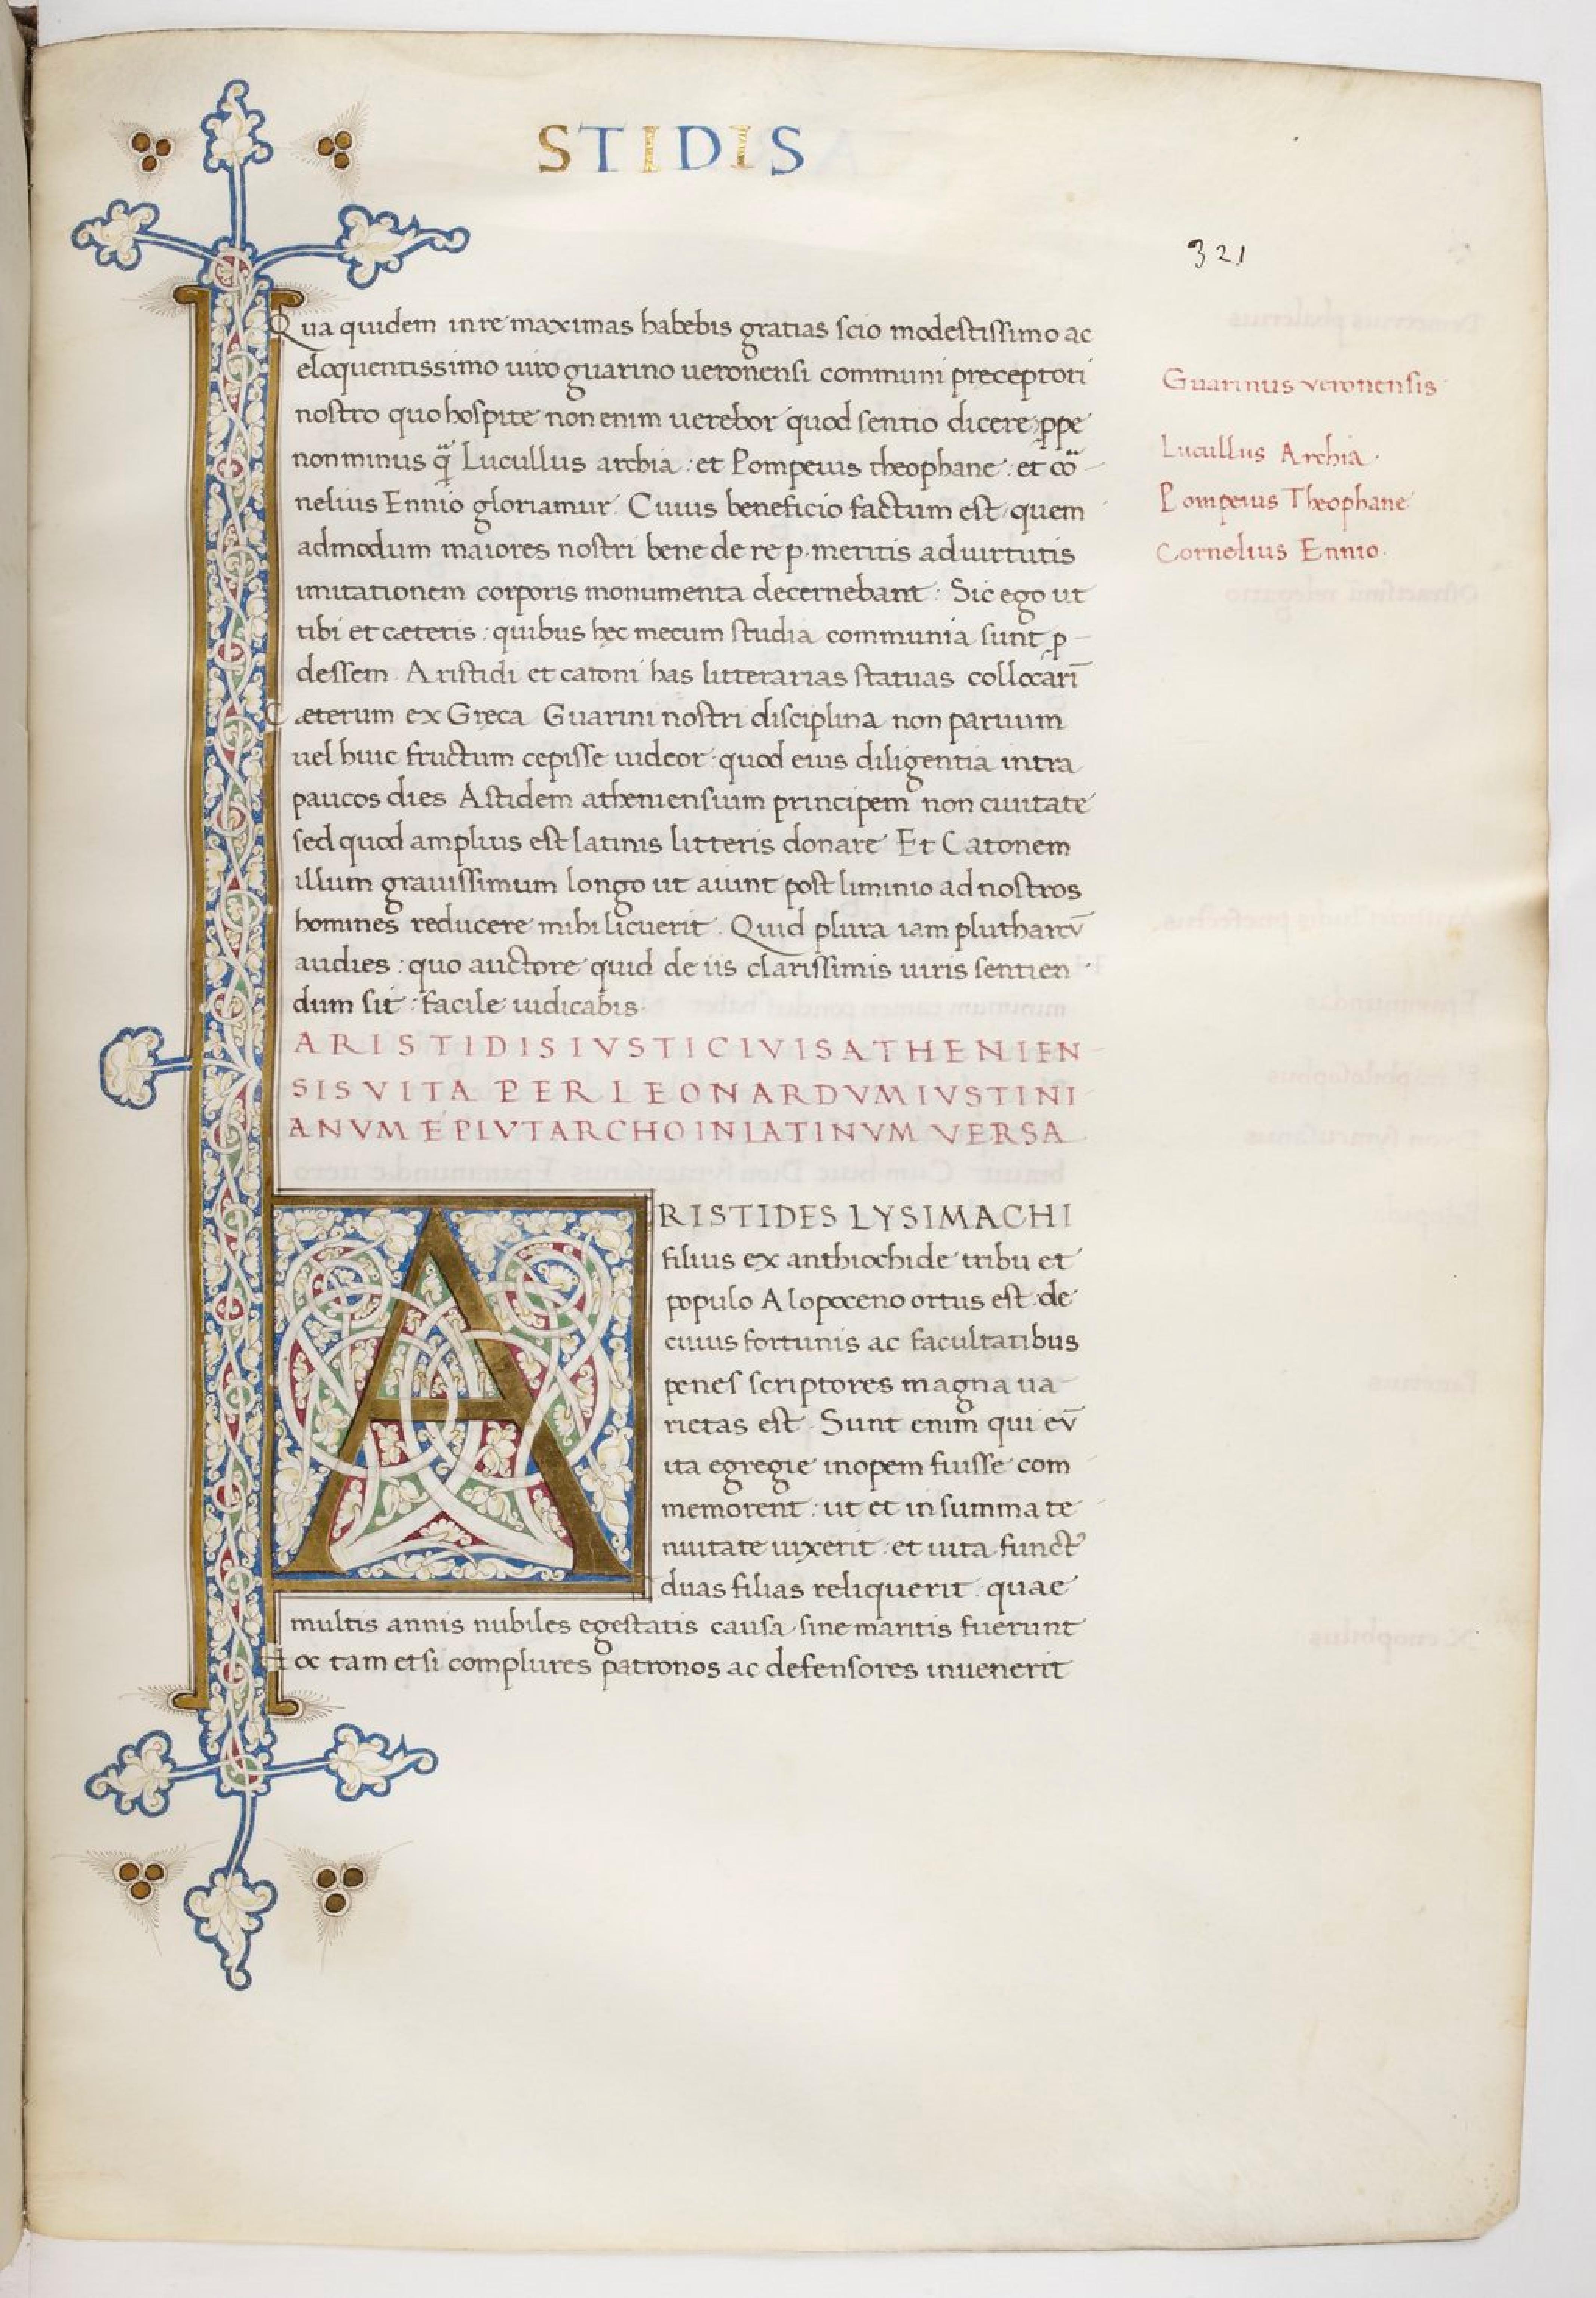 STIDIS
321
Qua quidem in re maximas habebis gratias scio modestissimo ac
eloquentissimo uiro guarino ueronensi communi preceptori
nostro quo hospite non enim uerebor quod sentio dicere ꝓpe
non minus Lucullus archia : et Pompeius theophane : et
nelius Ennio gloriamur. Cuius beneficio factum est quem
admodum maiores nostri bene de re p. meritis ad uirtutis
imitationem corporis monumenta decernebant : Sic ego ut
tibi et cæteris : quibus hęc mecum studia communia sunt ꝓ-
dessem Aristidi et catoni has litterarias statuas collocari
Cæterum ex Gręca Guarini nostri disciplina non paruum
uel huic fructum cepisse uideor : quod eius diligentia intra
paucos dies Astidem atheniensium principem non ciuitate
sed quod amplius est latinis litteris donare Et Catonem
illum grauissimum longo ut aiunt post liminio ad nostros
homines reducere mihi licuerit. Quid plura iam plutharcū
audies : quo auctore quid de iis clarissimis uiris sentien
dum sit : facile iudicabis.
ARISTIDIS IVSTI CIVIS ATHENIEN
SIS VITA PER LEONARDVM IVSTINI
ANVM E PLVTARCHO IN LATINVM VERSA
ARISTIDES LYSIMACHI
filius ex anthiochide tribu et
populo Alopoceno ortus est : de
cuius fortunis ac facultatibus
penes scriptores magna ua
rietas est. Sunt enim qui eū
ita egregie inopem fuisse com
memorent : ut et in summa te
nuitate uixerit : et uita funct᾽
duas filias reliquerit : quae
multis annis nubiles egestatis causa sine maritis fuerunt
Hoc tam etsi complures patronos ac defensores inuenerit
Guarinus veronensis
Lucullus Archia.
Pompeius Theophane
Cornelius Ennio.